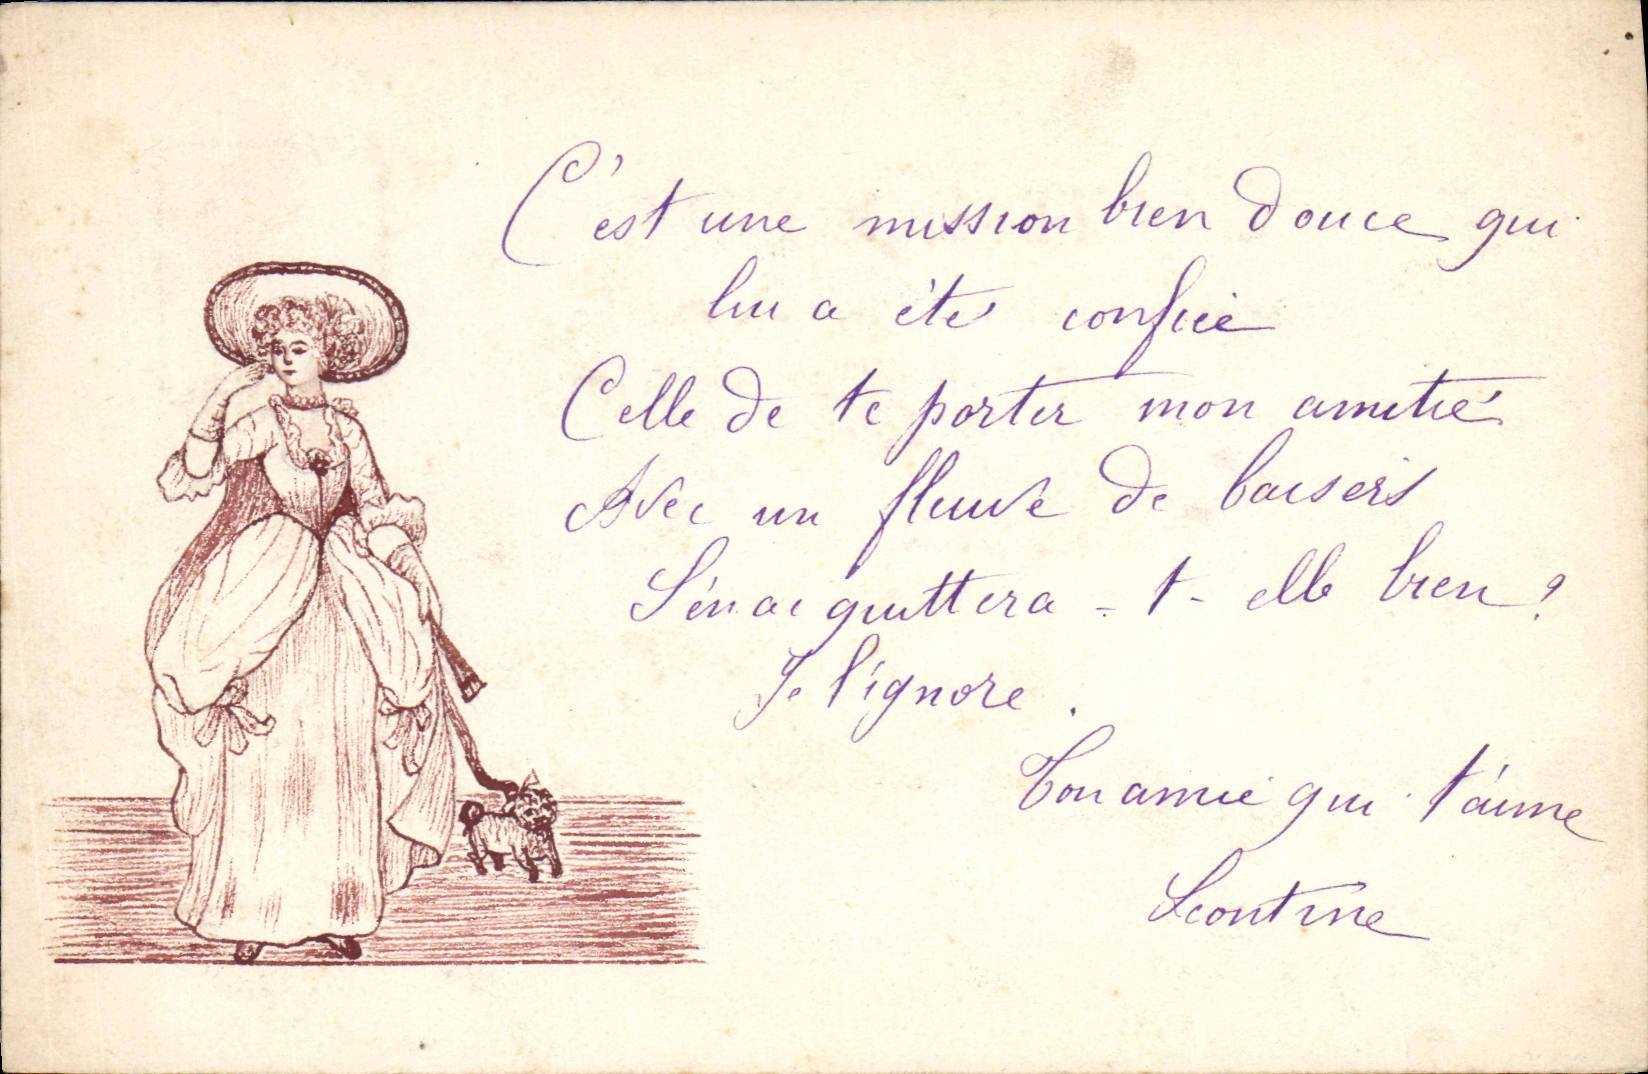 C'est une mission bien douce qui
lui a été confiée
Celle de te porter mon amitié
Avec un fleuve de baisers
S'en acquittera - t - elle bien ?
Je l'ignore.
Ton amie qui t'aime
Léontine